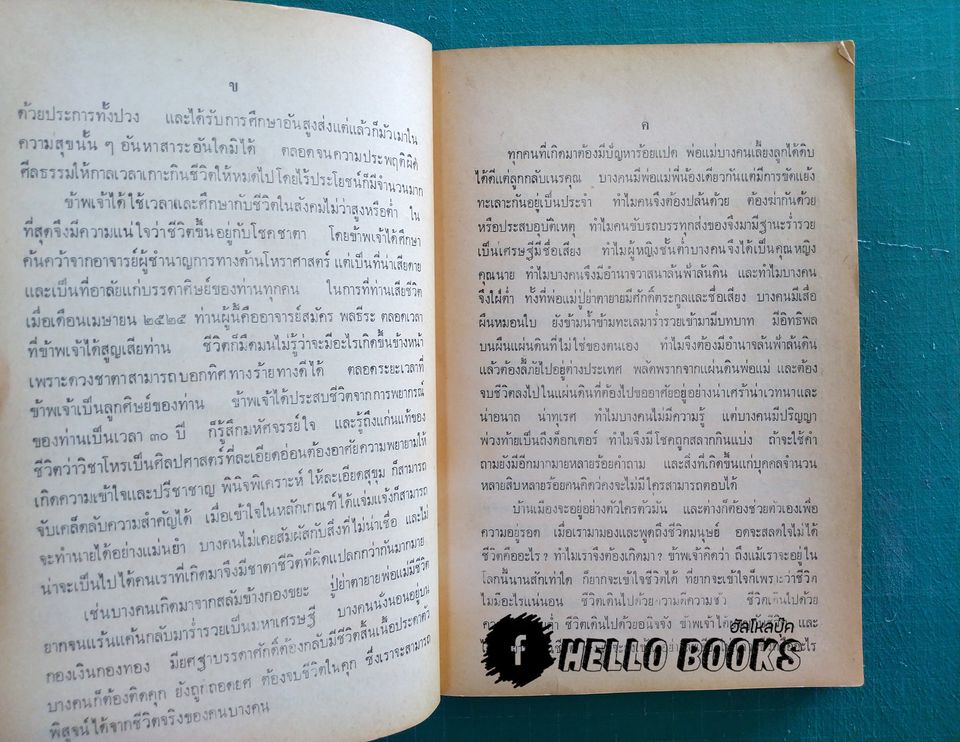 ข
ด้วยประการทั้งปวง และได้รับการศึกษาอันสูงส่งแต่แล้วก็มัวเมาใน
ความสุขนั้น ๆ อันหาสาระอันใดมิได้ ตลอดจนความประพฤติผิด
ศีลธรรมให้กาลเวลาเกาะกินชีวิตให้หมดไปโดยไร้ประโยชน์ก็มีจำนวนมาก
ข้าพเจ้าได้ใช้เวลาและศึกษากับชีวิตในสังคมไม่ว่าสูงหรือต่ำ ใน
ที่สุดจึงมีความแน่ใจว่าชีวิตขึ้นอยู่กับโชคชาตา โดยข้าพเจ้าได้ศึกษา
ค้นคว้าจากอาจารย์ผู้ชำนาญการทางด้านโหราศาสตร์ แต่เป็นที่น่าเสียดาย
และเป็นที่อาลัยแก่บรรดาศิษย์ของท่านทุกคน ในการที่ท่านเสียชีวิต
เมื่อเดือนเมษายน ๒๕๒๕ ท่านผู้นี้คืออาจารย์สมัคร พลธีระ ตลอดเวลา
ที่ข้าพเจ้าได้สูญเสียท่าน ชีวิตก็มืดมนไม่รู้ว่าจะมีอะไรเกิดขึ้นข้างหน้า
เพราะดวงชาตาสามารถบอกทิศทางร้ายทางดีได้ ตลอดระยะเวลาที่
ข้าพเจ้าเป็นลูกศิษย์ของท่าน ข้าพเจ้าได้ประสบชีวิตจากการพยากรณ์
ของท่านเป็นเวลา ๓๐ ปี ก็รู้สึกมหัศจรรย์ใจ และรู้ถึงแก่นแท้ของ
ชีวิตว่าวิชาโหรเป็นศิลปศาสตร์ที่ละเอียดอ่อนต้องอาศัยความพยายามให้
เกิดความเข้าใจและปรีชาชาญ พินิจพิเคราะห์ ให้ละเอียดสุขุม ก็สามารถ
จับเคล็ดลับความสำคัญได้ เมื่อเข้าใจในหลักเกณฑ์ได้แจ่มแจ้งก็สามารถ
จะทำนายได้อย่างแม่นยำ บางคนไม่เคยสัมผัสกับสิ่งที่ไม่น่าเชื่อ และไม่
น่าจะเป็นไปได้คนเราที่เกิดมาจึงมีชาตาชีวิตที่ผิดแปลกกว่ากันมากมาย
เช่นบางคนเกิดมาจากสลัมข้างกองขยะ ปู่ย่าตายายพ่อแม่มีชีวิต
ยากจนแร้นแค้นกลับมาร่ำรวยเป็นมหาเศรษฐี บางคนนั่งนอนอยู่บน
กองเงินกองทอง มียศฐาบรรดาศักดิ์ต้องกลับมีชีวิตสิ้นเนื้อประดาตัว
บางคนก็ต้องติดคุก ยังถูกถอดยศ ต้องจบชีวิตในคุก ซึ่งเราจะสามารถ
พิสูจน์ได้จากชีวิตจริงของคนบางคน
ค
ทุกคนที่เกิดมาต้องมีปัญหาร้อยแปด พ่อแม่บางคนเลี้ยงลูกได้ดิบ
ได้ดีแต่ลูกกลับเนรคุณ บางคนมีพ่อแม่พี่น้องเดียวกันแต่มีการขัดแย้ง
ทะเลาะกันอยู่เป็นประจำ ทำไมคนจึงต้องปล้นด้วย ต้องฆ่ากันด้วย
หรือประสบอุบัติเหตุ ทำไมคนขับรถบรรทุกส่งของจึงมามีฐานะร่ำรวย
เป็นเศรษฐีมีชื่อเสียง ทำไมผู้หญิงชั้นต่ำบางคนจึงได้เป็นคุณหญิง
คุณนาย ทำไมบางคนจึงมีอำนาจวาสนาล้นฟ้าล้นดิน และทำไมบางคน
จึงใฝ่ต่ำ ทั้งที่พ่อแม่ปู่ย่าตายายมีศักดิ์ตระกูลและชื่อเสียง บางคนมีเสื่อ
ผืนหมอนใบ ยังข้ามน้ำข้ามทะเลมาร่ำรวยเข้ามามีบทบาท มีอิทธิพล
บนผืนแผ่นดินที่ไม่ใช่ของตนเอง ทำไมจึงต้องมีอำนาจล้นฟ้าล้นดิน
แล้วต้องลี้ภัยไปอยู่ต่างประเทศ พลัดพรากจากแผ่นดินพ่อแม่ และต้อง
จบชีวิตลงไปในแผ่นดินที่ต้องไปขออาศัยอยู่อย่างน่าเศร้าน่าเวทนาและ
น่าอนาถ น่าทุเรศ ทำไมบางคนไม่มีความรู้ แต่บางคนมีปริญญา
พ่วงท้ายเป็นถึงด็อกเตอร์ ทำไมจึงมีโชคถูกสลากกินแบ่ง ถ้าจะใช้คำ
ถามยังมีอีกมากมายหลายร้อยคำถาม และสิ่งที่เกิดขึ้นแก่บุคคลจำนวน
หลายสิบหลายร้อยคนคิดว่าคงจะไม่มีใครสามารถตอบได้
บ้านเมืองจะอยู่อย่างตัวใครตัวมัน และต่างก็ต้องช่วยตัวเองเพื่อ
ความอยู่รอด เมื่อเรามามองและพูดถึงชีวิตมนุษย์ อดจะสลดใจไม่ได้
ชีวิตคืออะไร ? ทำไมเราจึงต้องเกิดมา ? ข้าพเจ้าคิดว่า ถึงแม้เราจะอยู่ใน
โลกนี้นานสักเท่าใด ก็ยากจะเข้าใจชีวิตได้ ที่ยากจะเข้าใจก็เพราะว่าชีวิต
ไม่มีอะไรแน่นอน ชีวิตเดินไปด้วยความดีความชั่ว ชีวิตเดินไปด้วย
ชีวิตเดินไปด้วยอนิจจัง ข้าพเจ้าได้
ฮัลโหลบุ๊ค
f HELLO BOOKS